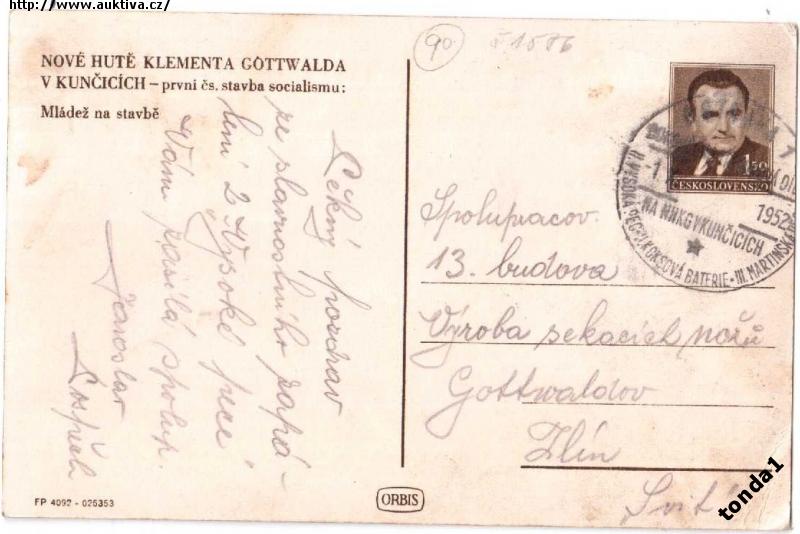 http://www.auktiva.cz/
NOVÉ HUTĚ KLEMENTA GOTTWALDA
V KUNČICÍCH – první čs. stavba socialismu:
Mládež na stavbě
90
Pěkný pozdrav
ze slavnostního zapá-
lení 2 Vysoké pece
Vám posílá spolup.
Jaroslav
Pospěch
FP 4092 - 025353
ORBIS
1.50
ČESKOSLOVENSKO
1952
II. VYSOKÁ PEC
KOKSOVÁ BATERIE - III. MARTINSKÁ
NA NHKG V KUNČICÍCH
Spolupracov.
13. budova
Výroba sekacích nožů
Gottwaldov
Zlín
Svit
tonda1